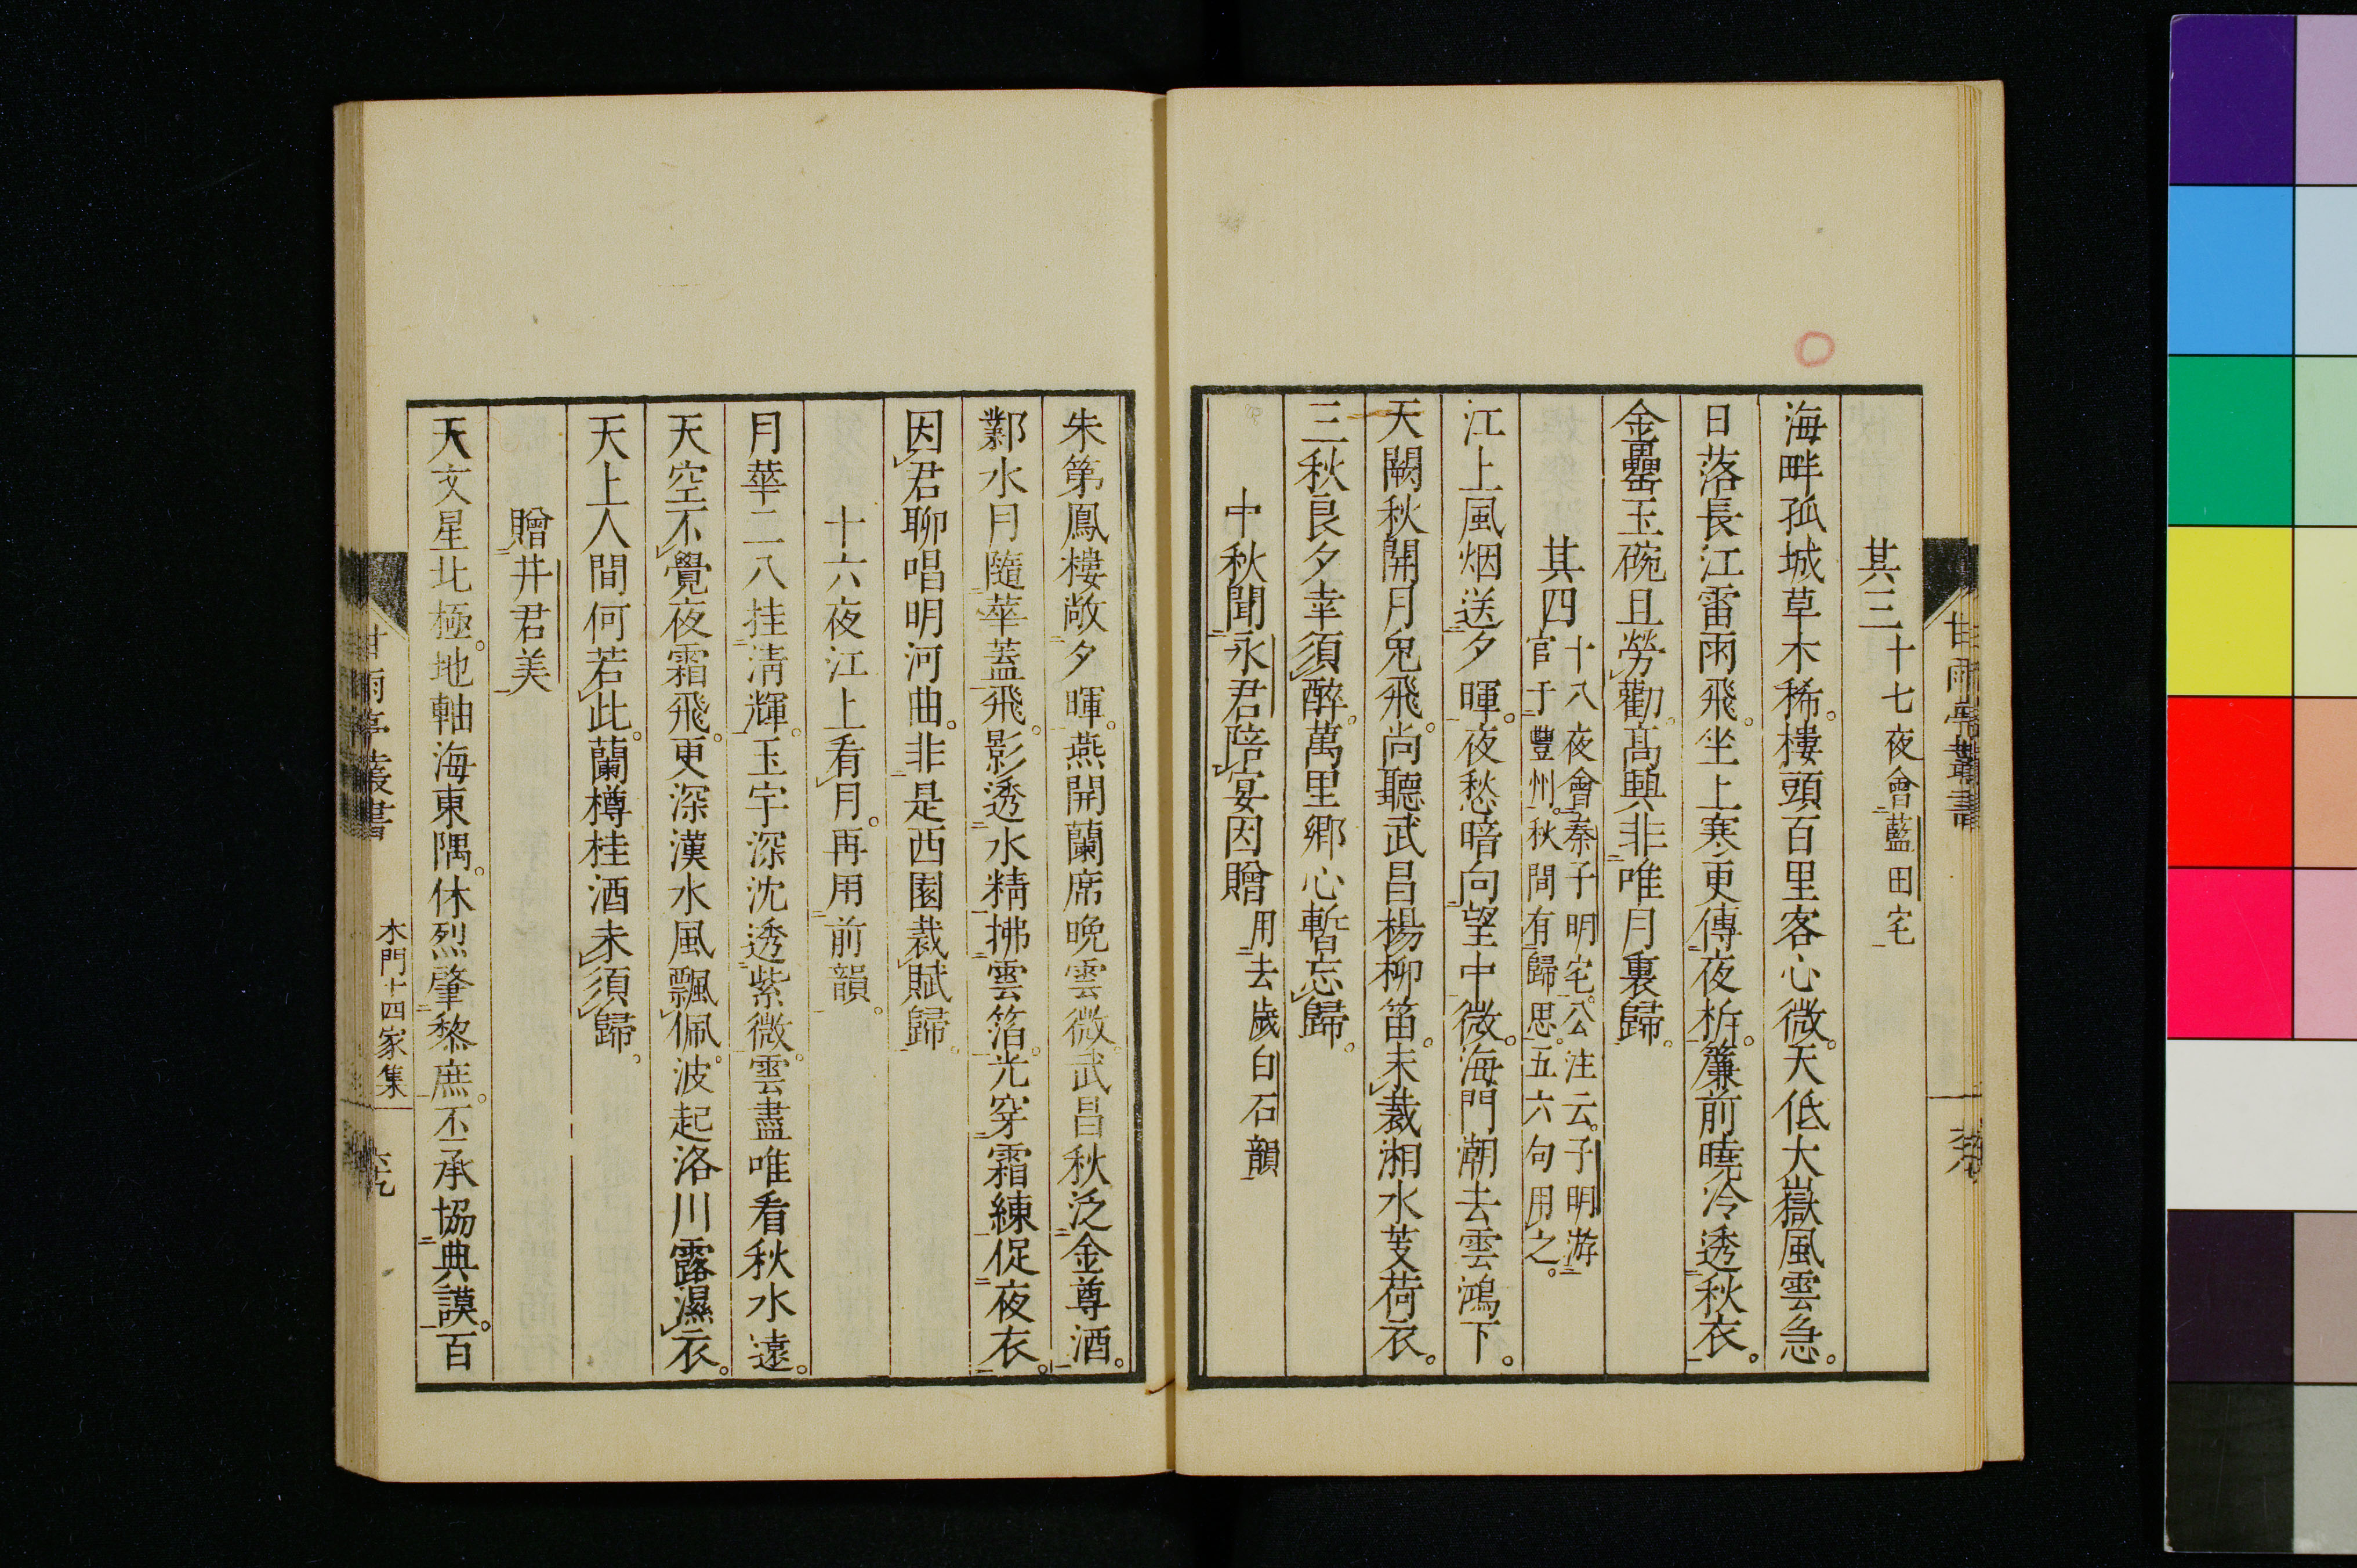 其三十七夜會藍田宅
海畔孤城草木稀。樓頭百里客心微。天低大嶽風雲急。
日落長江雷雨飛。坐上寒更傳夜柝。簾前曉冷透秋衣。
金罍玉碗且勞勸。髙興非唯月裏歸。
其四十八夜會秦子明宅。公注云。子明游
官于豐州。秋間有歸思。五六句用之。
江上風烟送夕暉。夜愁暗向望中微。海門潮去雲鴻下。
天闕秋開月兔飛。尚聽武昌楊柳笛。未裁湘水芰荷衣。
三秋良夕幸須醉。萬里鄉心暫忘歸。
中秋聞永君陪宴因贈用去歲白石韻
朱第鳳樓敞夕暉。燕開蘭席晚雲微。武昌秋泛金尊酒。
鄴水月隨華蓋飛。影透水精拂雲箔。光穿霜練促夜衣。
因君聊唱明河曲。非是西園裁賦歸。
十六夜江上看月。再用前韻。
月華二八挂淸輝。玉宇深沈透紫微。雲盡唯看秋水遠。
天空不覺夜霜飛。更深漢水風飄佩。波起洛川露濕衣。
天上人間何若此。蘭樽桂酒未須歸。
贈井君美
天文星北極。地軸海東隅。休烈肇黎庶。丕承協典謨。百
甘雨亭叢書
木門十四家集